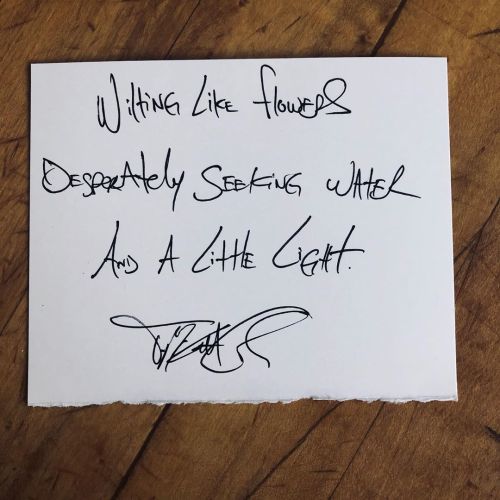 Wilting Like Flowers
Desperately Seeking Water
And A Little Light.